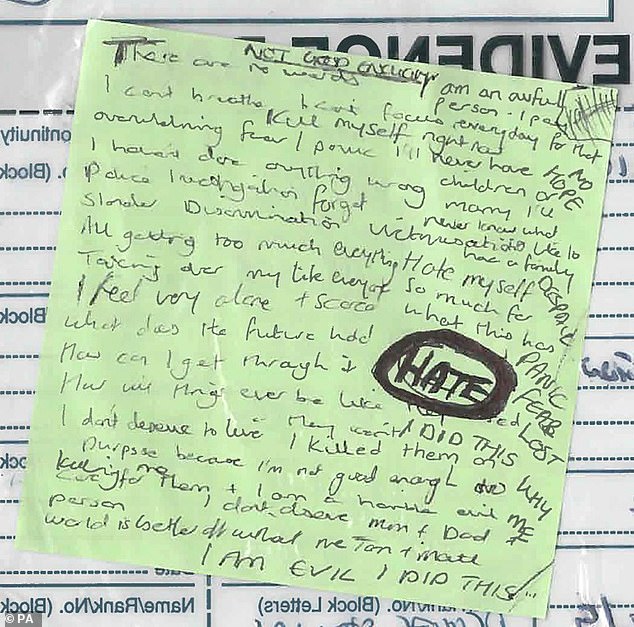 EVIDENCE
NOT GOOD ENOUGH
There are no words I am an awful person. I pay
I can't breathe I can't focus everyday for that
Kill myself right now NO
overwhelming fear / panic I'll never have HOPE
children or
I haven't done anything wrong marry I'll
never know what
Police investigation forget its like to
Slander Discrimination Victimisation had a family
All getting too much everything Hate myself DESPAIR
Taking over my life so much for
I feel very alone + scared what this has PANIC
What does the future hold FEAR
How can I get through it HATE LOST
How will things ever be like
I DID THIS
I don't deserve to live I killed them on WHY
purpose because I'm not good enough ME
to care for them + I am a horrible evil
killing me
person I don't deserve mum + Dad +
world is better off without me
I AM EVIL I DID THIS
Continuity
No. (Block
Name/Rank/No. (Block Letters)
Name/Rank/No. (Block
© PA